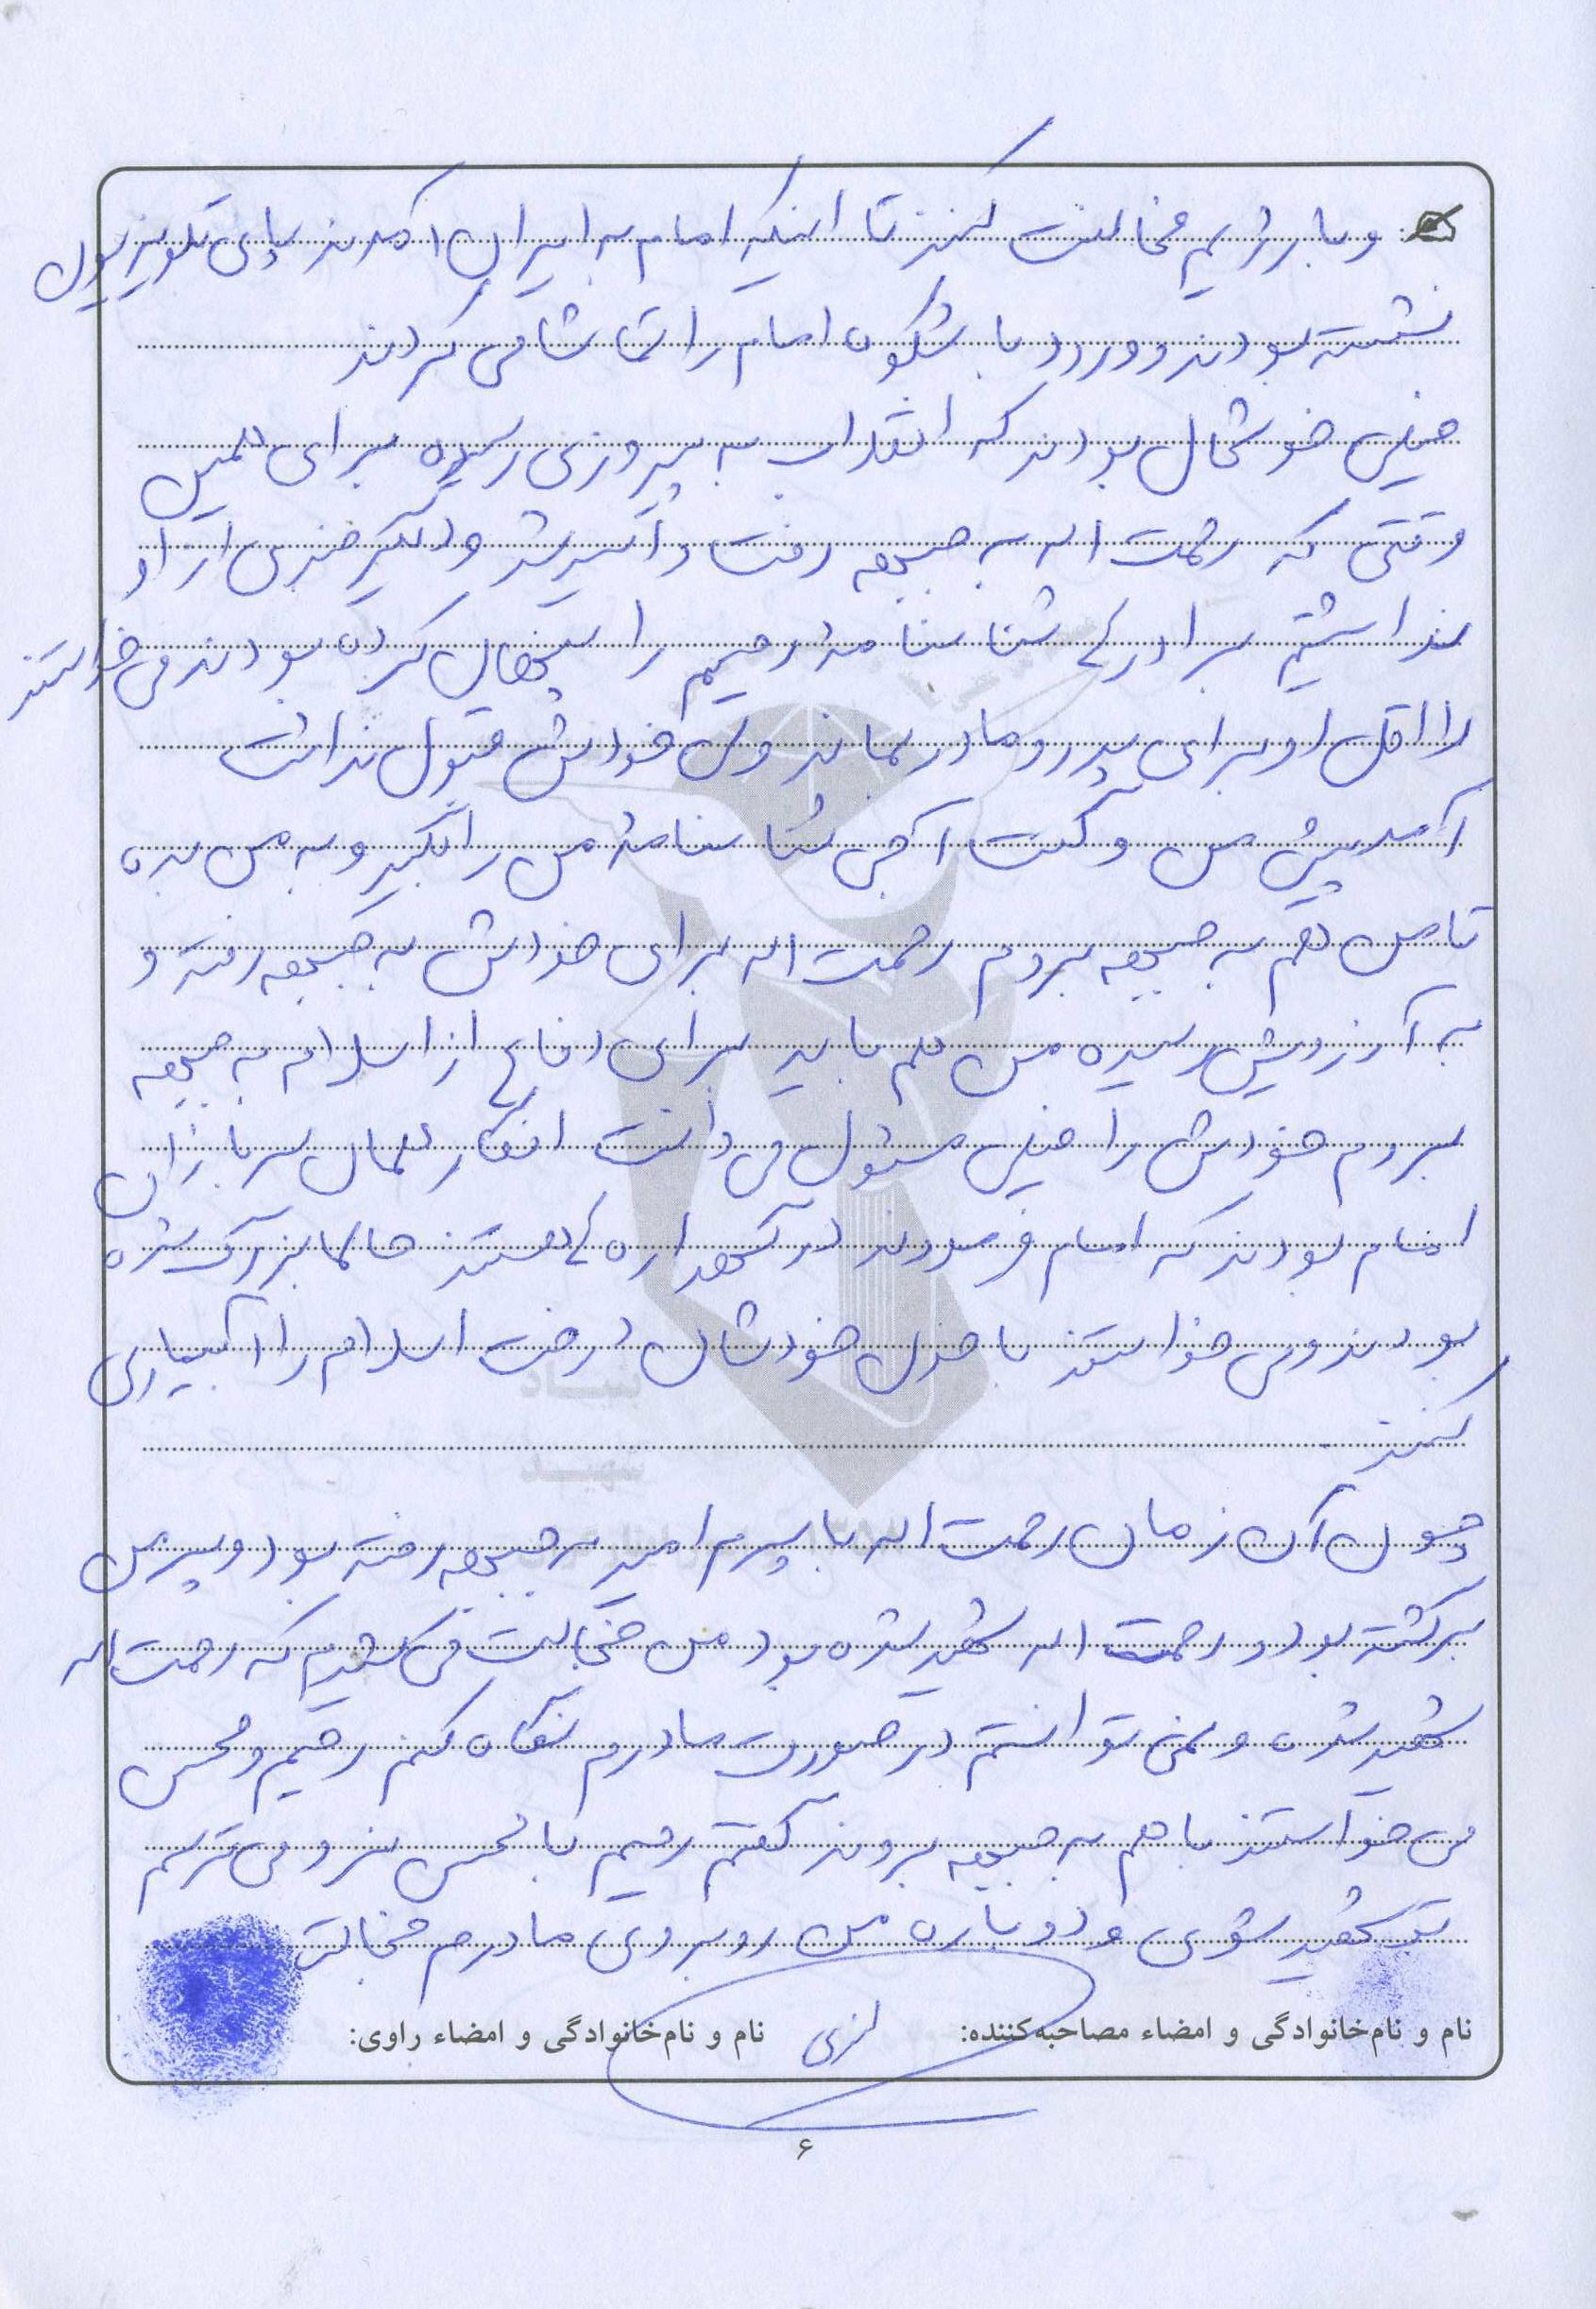 و با رژیم مخالفت کنند تا اینکه امام به ایران آمدند پای تلویزیون
نشسته بودند و ورود با شکوه امام را تماشا می کردند
خیلی خوشحال بودند که انقلاب به پیروزی رسیده برای همین
وقتی که رحمت اله به جبهه رفت و اسیر شد و دیگر خبری از او
نداشتیم برادرم شناسنامه رحیم را پنهان کرده بودند می خواستند
لااقل او برای پدر و مادر بماند ولی خودش قبول نداشت
آمد پیش من و گفت آجی شناسنامه من را بگیر و به من بده
تا من هم به جبهه بروم رحمت اله برای خودش به جبهه رفته و
به آرزویش رسیده من هم باید برای دفاع از اسلام به جبهه
بروم خودش را خیلی مسئول می دانست انگار همان سربازان
امام بودند که امام فرمودند در گهواره هستند حالا بزرگ شده
بودند و می خواستند با خون خودشان درخت اسلام را آبیاری
کنند
چون آن زمان رحمت اله با پسرم امید به جبهه رفته بود و پسر من
برگشته بود و رحمت اله شهید شده بود من خجالت می کشیدم که رحمت اله
شهید شده و نمی توانستم در صورت مادرم نگاه کنم رحیم و محسن
می خواستند با هم به جبهه بروند گفتم رحیم با محسن نرو می ترسم
تو شهید شوی و دوباره من روبروی مادرم خجالت
نام و نام‌خانوادگی و امضاء مصاحبه‌کننده: نام و نام‌خانوادگی و امضاء راوی:
۶